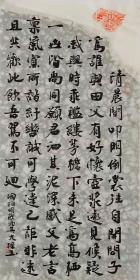 清晨聞叩門倒裳往自開問子
為誰與田父有好懷壺漿遠見候疑
我與時乖繿縷茅簷下未足為高栖
一世皆尚同願君汩其泥深感父老言
稟氣寡所諧紆轡誠可學違己詎非迷
且共歡此飲吾駕不可迴